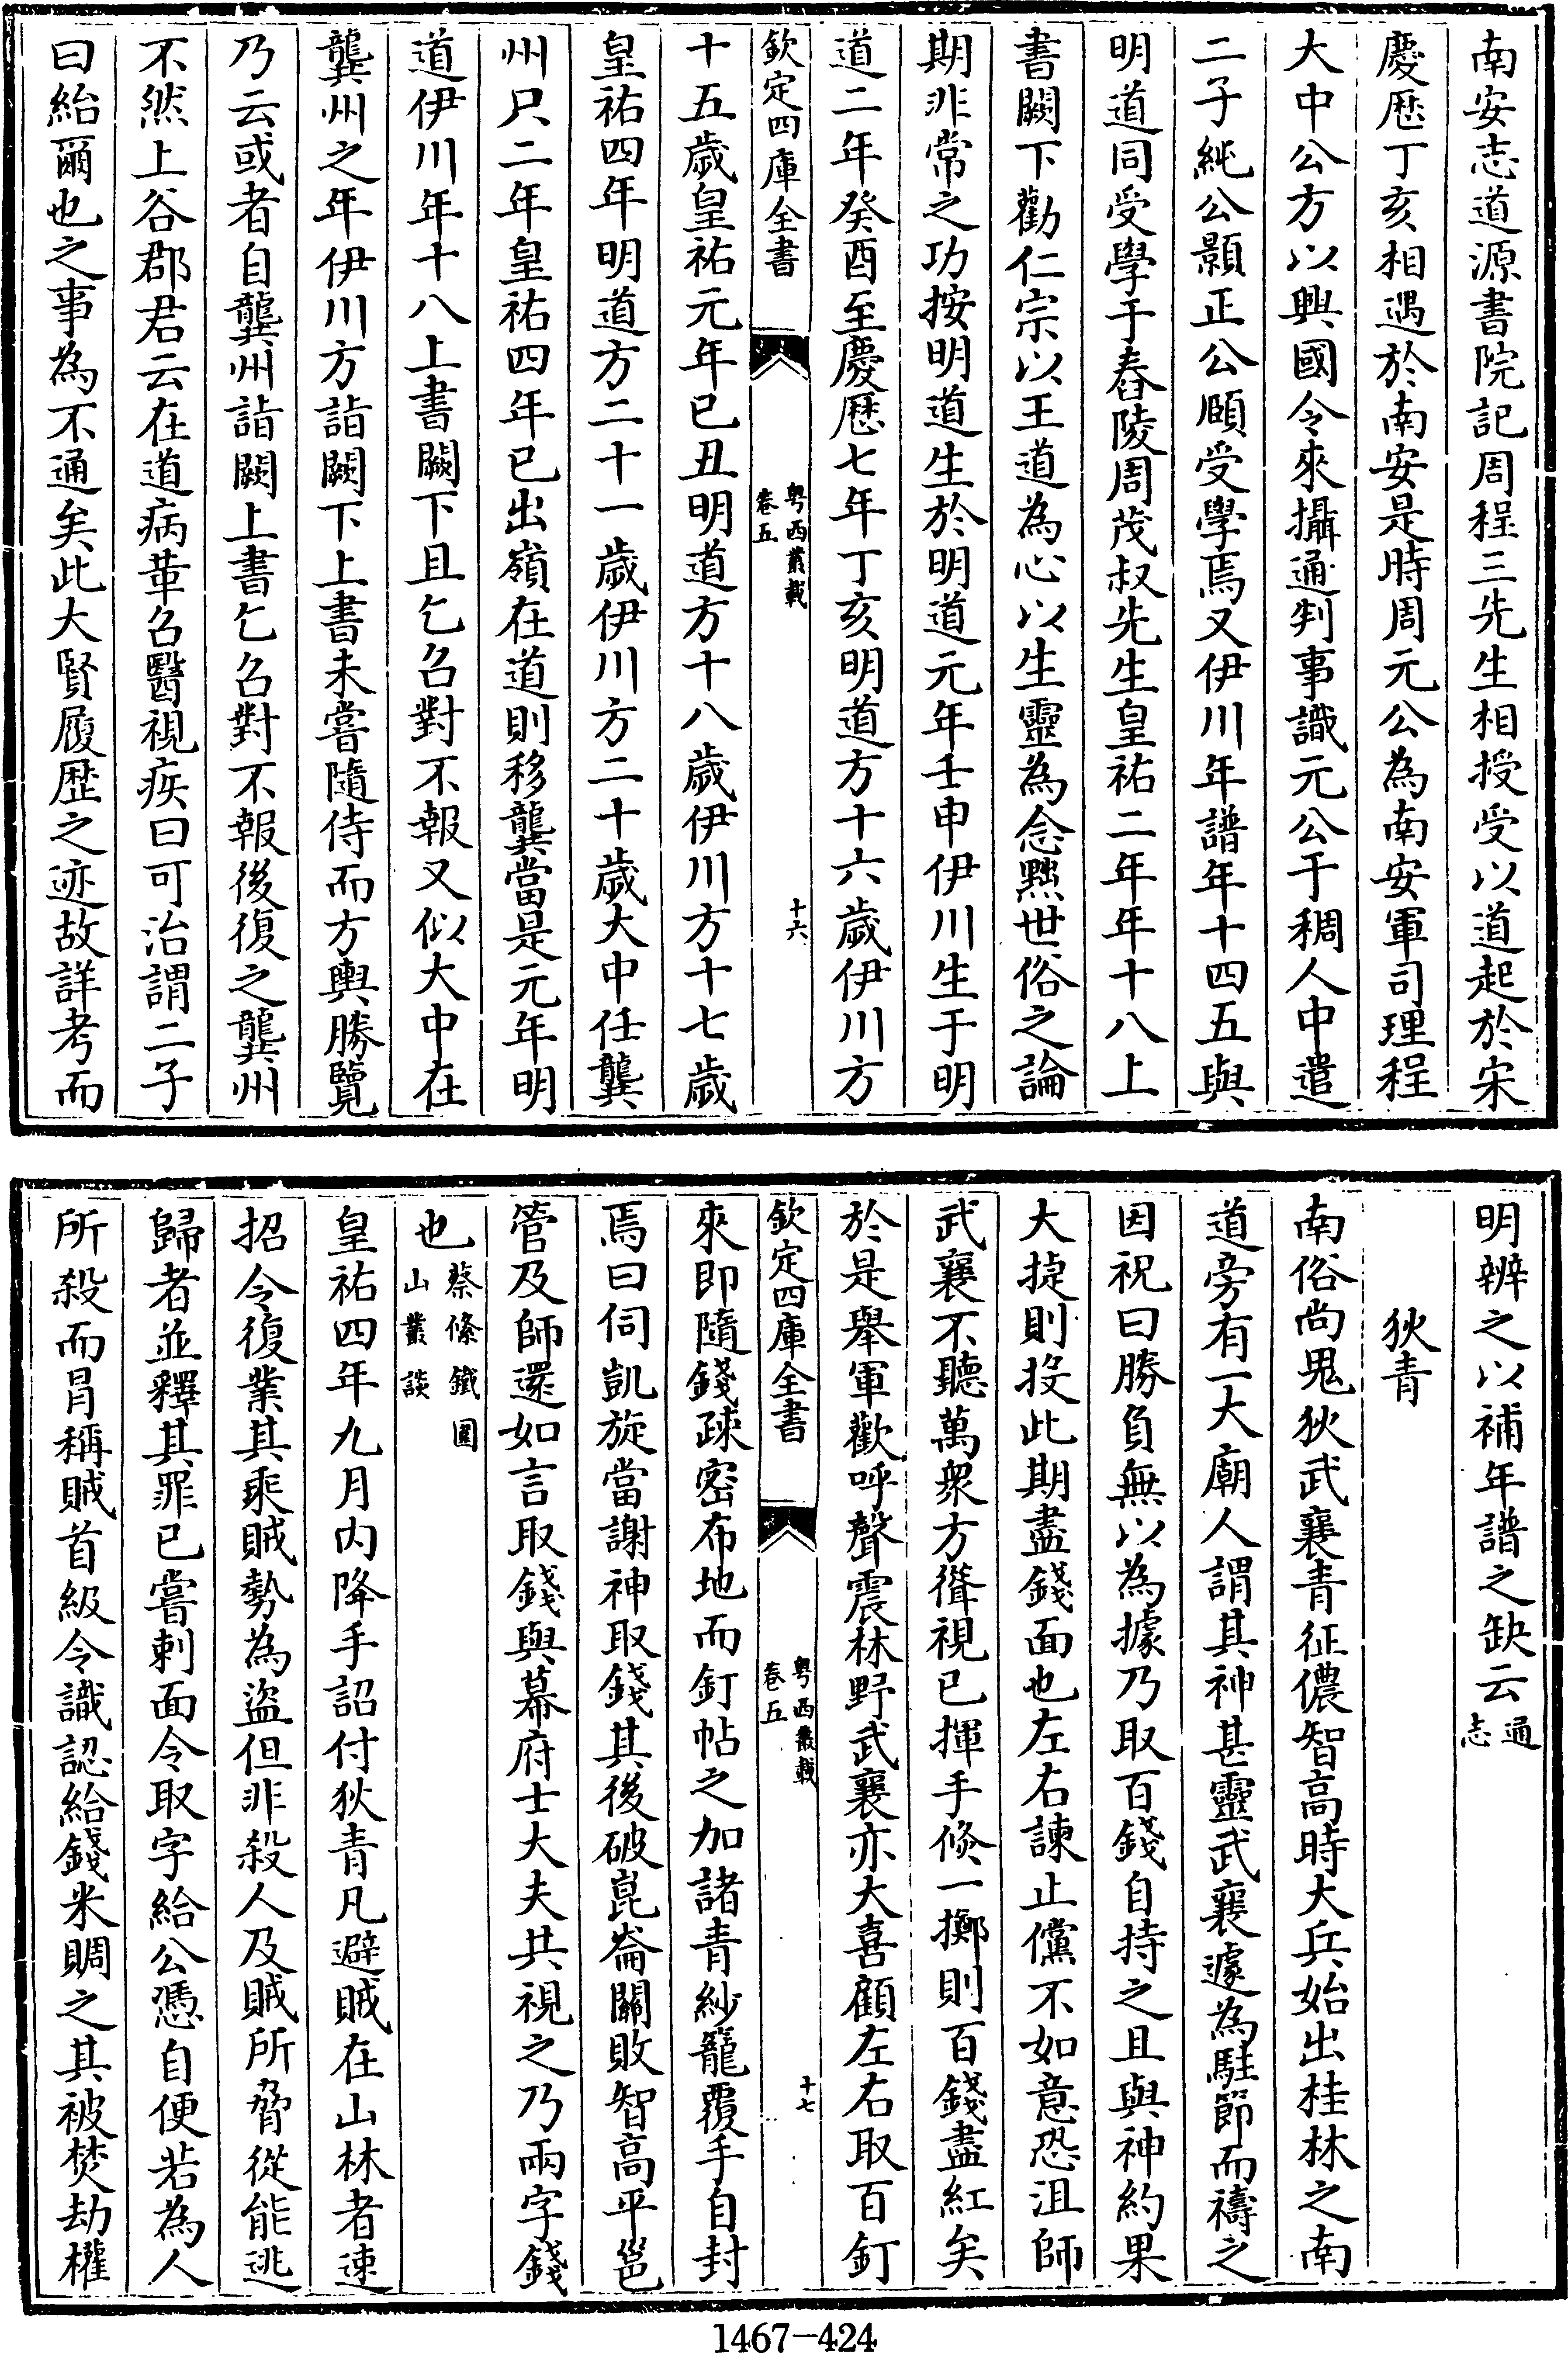 南安志道源書院記周程三先生相授受以道起於宋
慶厯丁亥相遇於南安是時周元公為南安軍司理程
大中公方以興國令來攝通判事識元公于稠人中遣
二子純公顥正公頤受學焉又伊川年譜年十四五與
明道同受學于舂陵周茂叔先生皇祐二年年十八上
書闕下勸仁宗以王道為心以生靈為念黜世俗之論
期非常之功按明道生於明道元年壬申伊川生于明
道二年癸酉至慶厯七年丁亥明道方十六歲伊川方
欽定四庫全書
粤西叢載
卷五
十六
十五歲皇祐元年己丑明道方十八歲伊川方十七歲
皇祐四年明道方二十一歲伊川方二十歲大中任龔
州只二年皇祐四年已出嶺在道則移龔當是元年明
道伊川年十八上書闕下且乞召對不報又似大中在
龔州之年伊川方詣闕下上書未嘗隨侍而方輿勝覽
乃云或者自龔州詣闕上書乞召對不報後復之龔州
不然上谷郡君云在道病革召醫視疾曰可治謂二子
曰紿爾也之事為不通矣此大賢履歴之迹故詳考而
明辨之以補年譜之缺云通志
狄青
南俗尚鬼狄武襄青征儂智高時大兵始出桂林之南
道旁有一大廟人謂其神甚靈武襄遽為駐節而禱之
因祝曰勝負無以為據乃取百錢自持之且與神約果
大捷則投此期盡錢面也左右諫止儻不如意恐沮師
武襄不聽萬衆方聳視已揮手倐一擲則百錢盡紅矣
於是舉軍歡呼聲震林野武襄亦大喜顧左右取百釘
欽定四庫全書
粤西叢載
卷五
十七
來即隨錢疎密布地而釘帖之加諸青紗籠覆手自封
焉曰伺凱旋當謝神取錢其後破崑崙關敗智高平邕
管及師還如言取錢與幕府士大夫共視之乃兩字錢
也蔡絛鐵圍山叢談
皇祐四年九月内降手詔付狄青凡避賊在山林者速
招令復業其乘賊勢為盜但非殺人及賊所脅從能逃
歸者並釋其罪已嘗刺面令取字給公憑自便若為人
所殺而冐稱賊首級令識認給錢米賙之其被焚劫權
1467-424